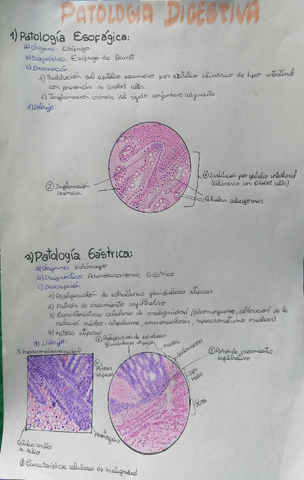 PATOLOGIA DIGESTIVA
1) Patología Esofágica:
a) Órgano: Esófago
b) Diagnóstico: Esófago de Barret
c) Descripción
1) Sustitución del epitelio escamoso por epitelio cilíndrico de tipo intestinal
con presencia de Goblet cells.
2) Inflamación crónica del tejido conjuntivo adyacente
d) Dibujo:
② Inflamación
crónica
① Sustitución por epitelio intestinal
(cilíndrico con Goblet cells)
Células caliciformes
2) Patología Gástrica:
a) Órgano: Estómago
b) Diagnóstico: Adenocarcinoma Gástrico
c) Descripción
1) Proliferación de estructuras glandulares atípicas
2) Patrón de crecimiento infiltrativo
3) Características celulares de malignidad (pleomorfismo, alteración de la
relación núcleo-citoplasma, anisonucleosis, hipercromatismo nuclear).
4) Mitosis atípicas
d) Dibujo:
① Proliferación de estructuras
glandulares atípicas
② Patrón de crecimiento
infiltrativo
Mitosis
atípicas
mucosa
submucosa
Serosa
Células anillo
de sello
③ Características celulares de malignidad